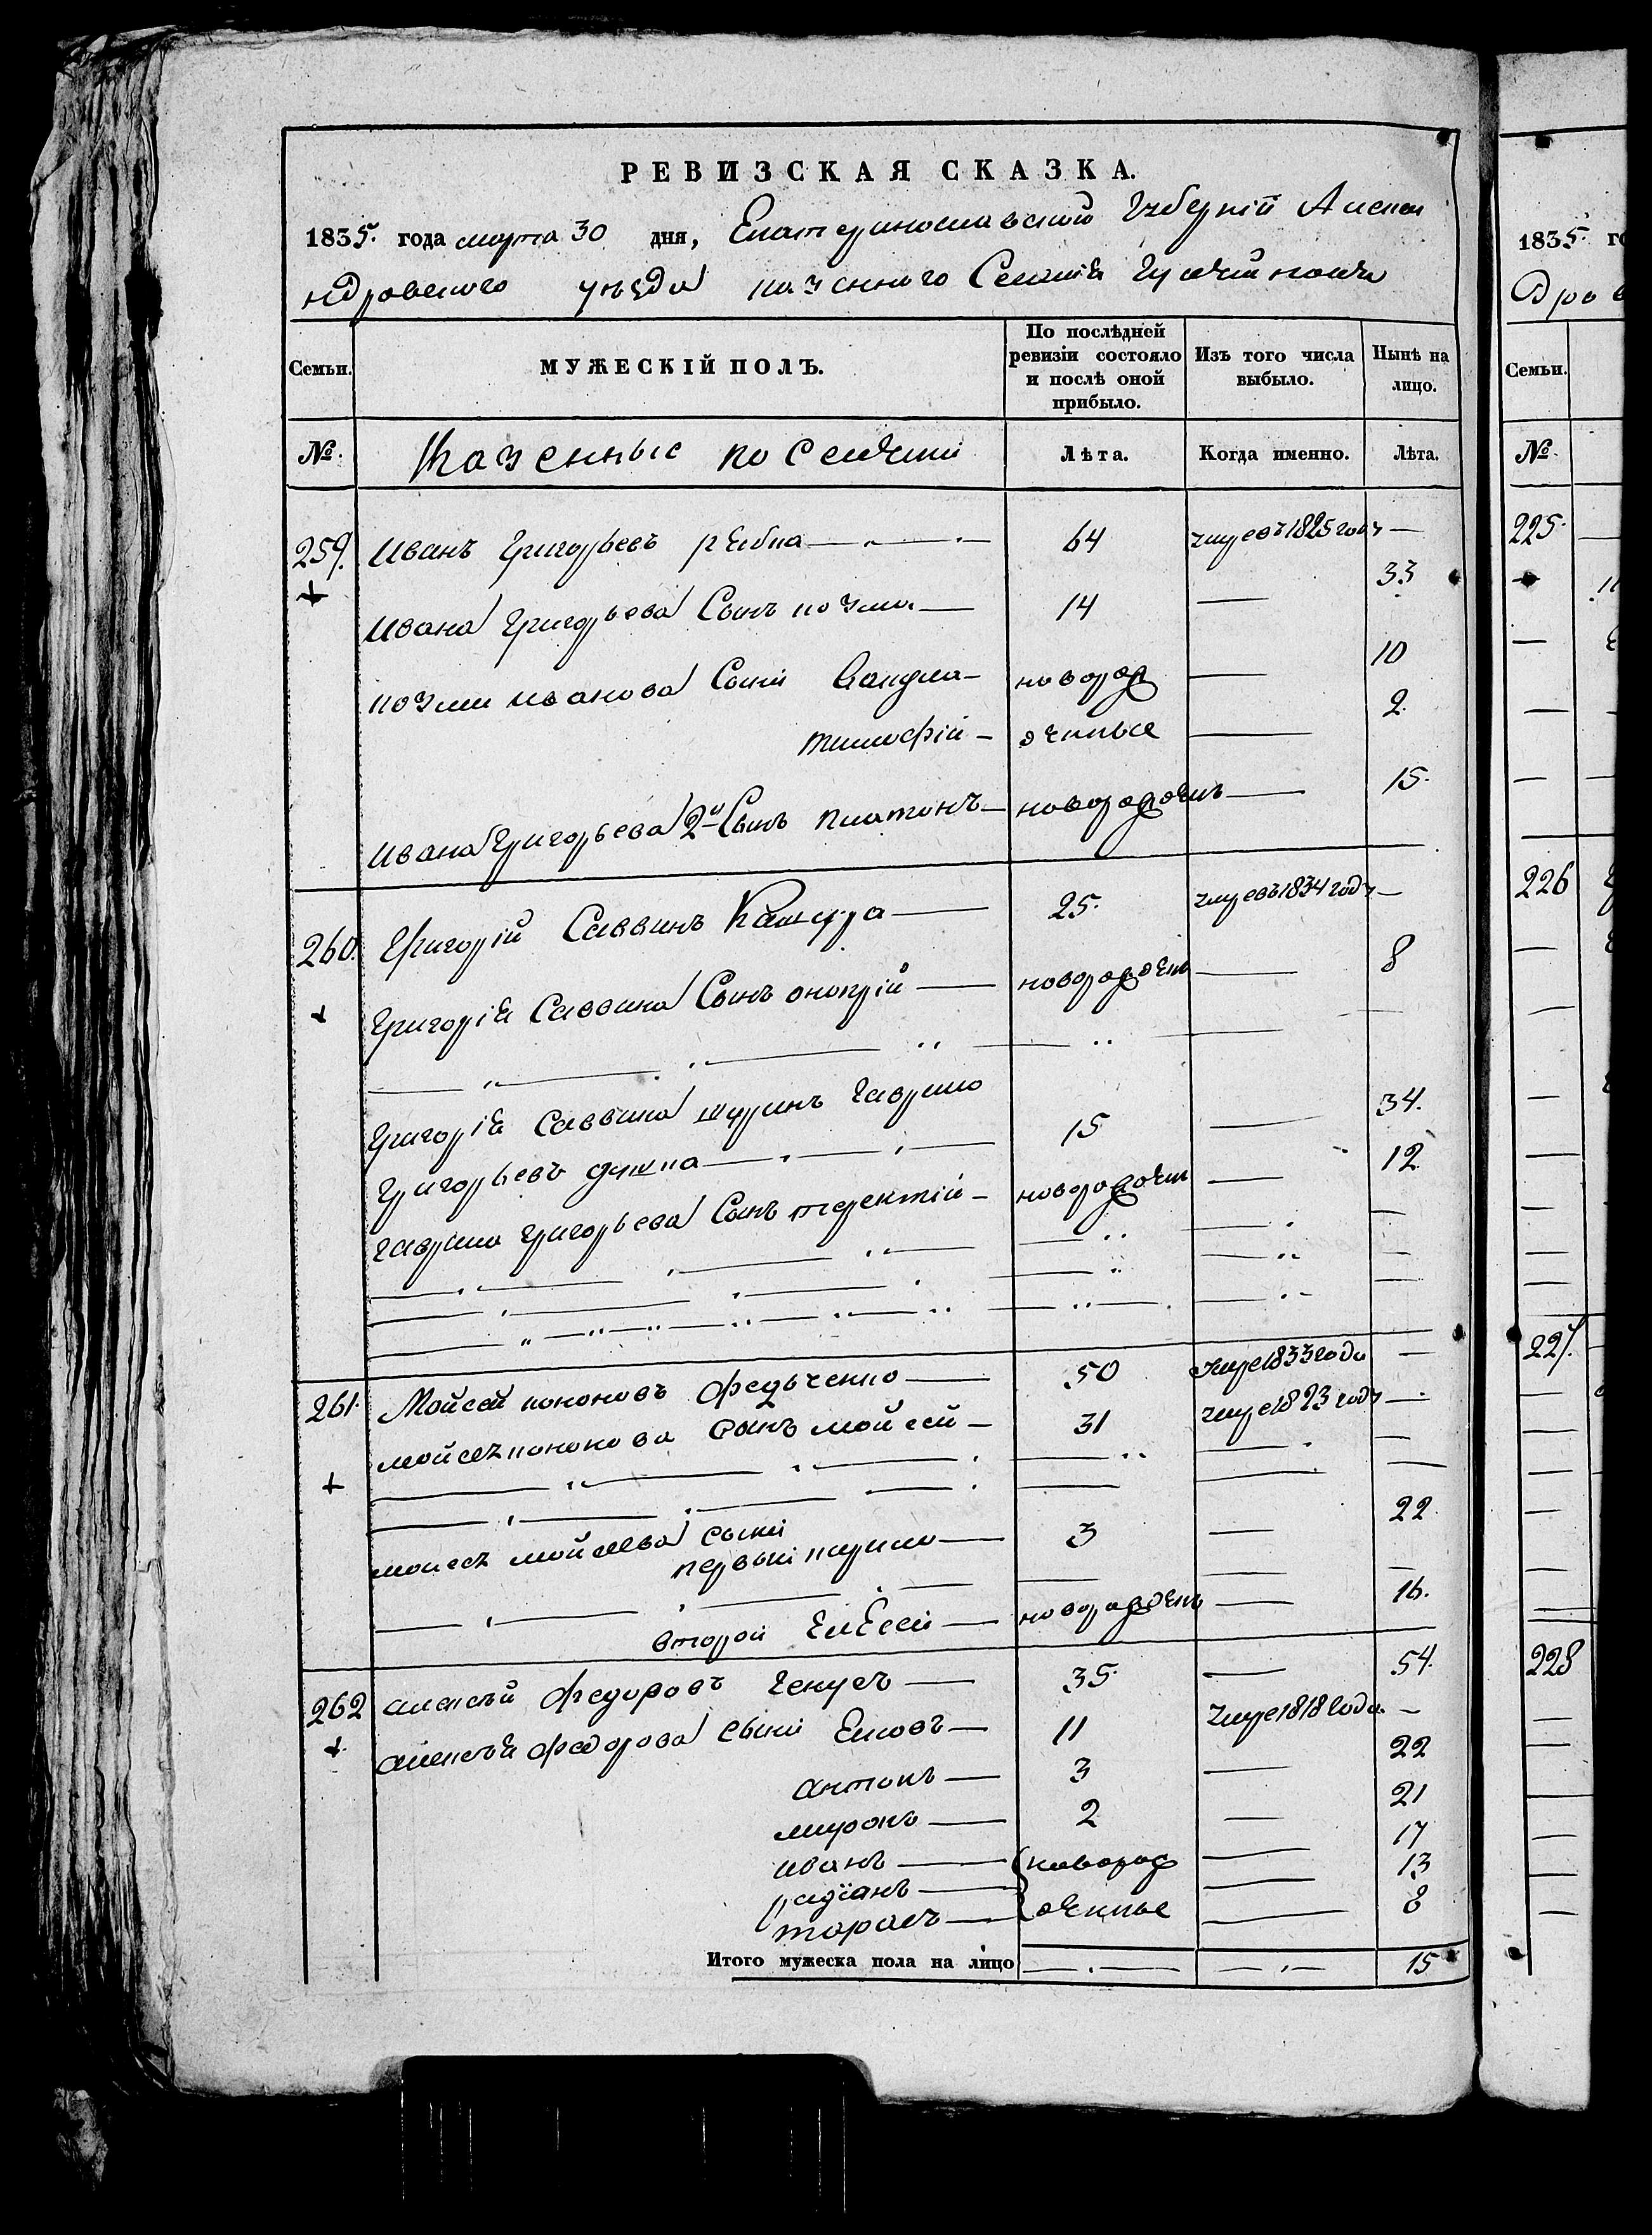 РЕВИЗСКАЯ СКАЗКА.
1835. года марта 30 дня, Екатеринославской Губерній Алекса
ндровского уѣзда казенного Селенія
Семьи. МУЖЕСКІЙ ПОЛЪ. По послѣдней ревизіи состояло и послѣ оной прибыло. Изъ того числа выбыло. Нынѣ на лицо.
№. Казенные поселяни Лѣта. Когда именно. Лѣта.
259. Иванъ Григорьевъ рябка 64 умре въ 1825 году —
Ивана Григорьева Сынъ козма 14 — 33
козми иванова Сыни новорож — 10
тимофій дениые — 2
Ивана Григорьева 2й Сынъ платонъ новорожденъ — 15
260. Григорій Саввинъ 25 умре въ 1834 году —
Григорія Саввина Сынъ онопрій новорожденъ — 8
Григорія Саввина шуринъ гаврило
Григорьевъ душка 15 — 34.
гаврила Григорьева Сынъ терентій новорожден — 12
261. Мойсей кононовъ федьченко 50 умре 1833 года —
мойсея кононова Сынъ мойсей 31 умре 1823 году —
мойсея мойсеева Сыни
первый кирило 3 — 22
второй Елесей новорожденъ — 16.
262 алексѣй федоровъ 35 — 54.
алексѣя федорова Сыни Яковъ 11 умре 1818 года —
антонъ 3 — 22
миронъ 2 — 21
иванъ новорож — 17
радіанъ — 13
тарасъ денные — 8
Итого мужеска пола на лицо — — 15
1835. го
Дров
Семьи.
№
225.
226
227.
228